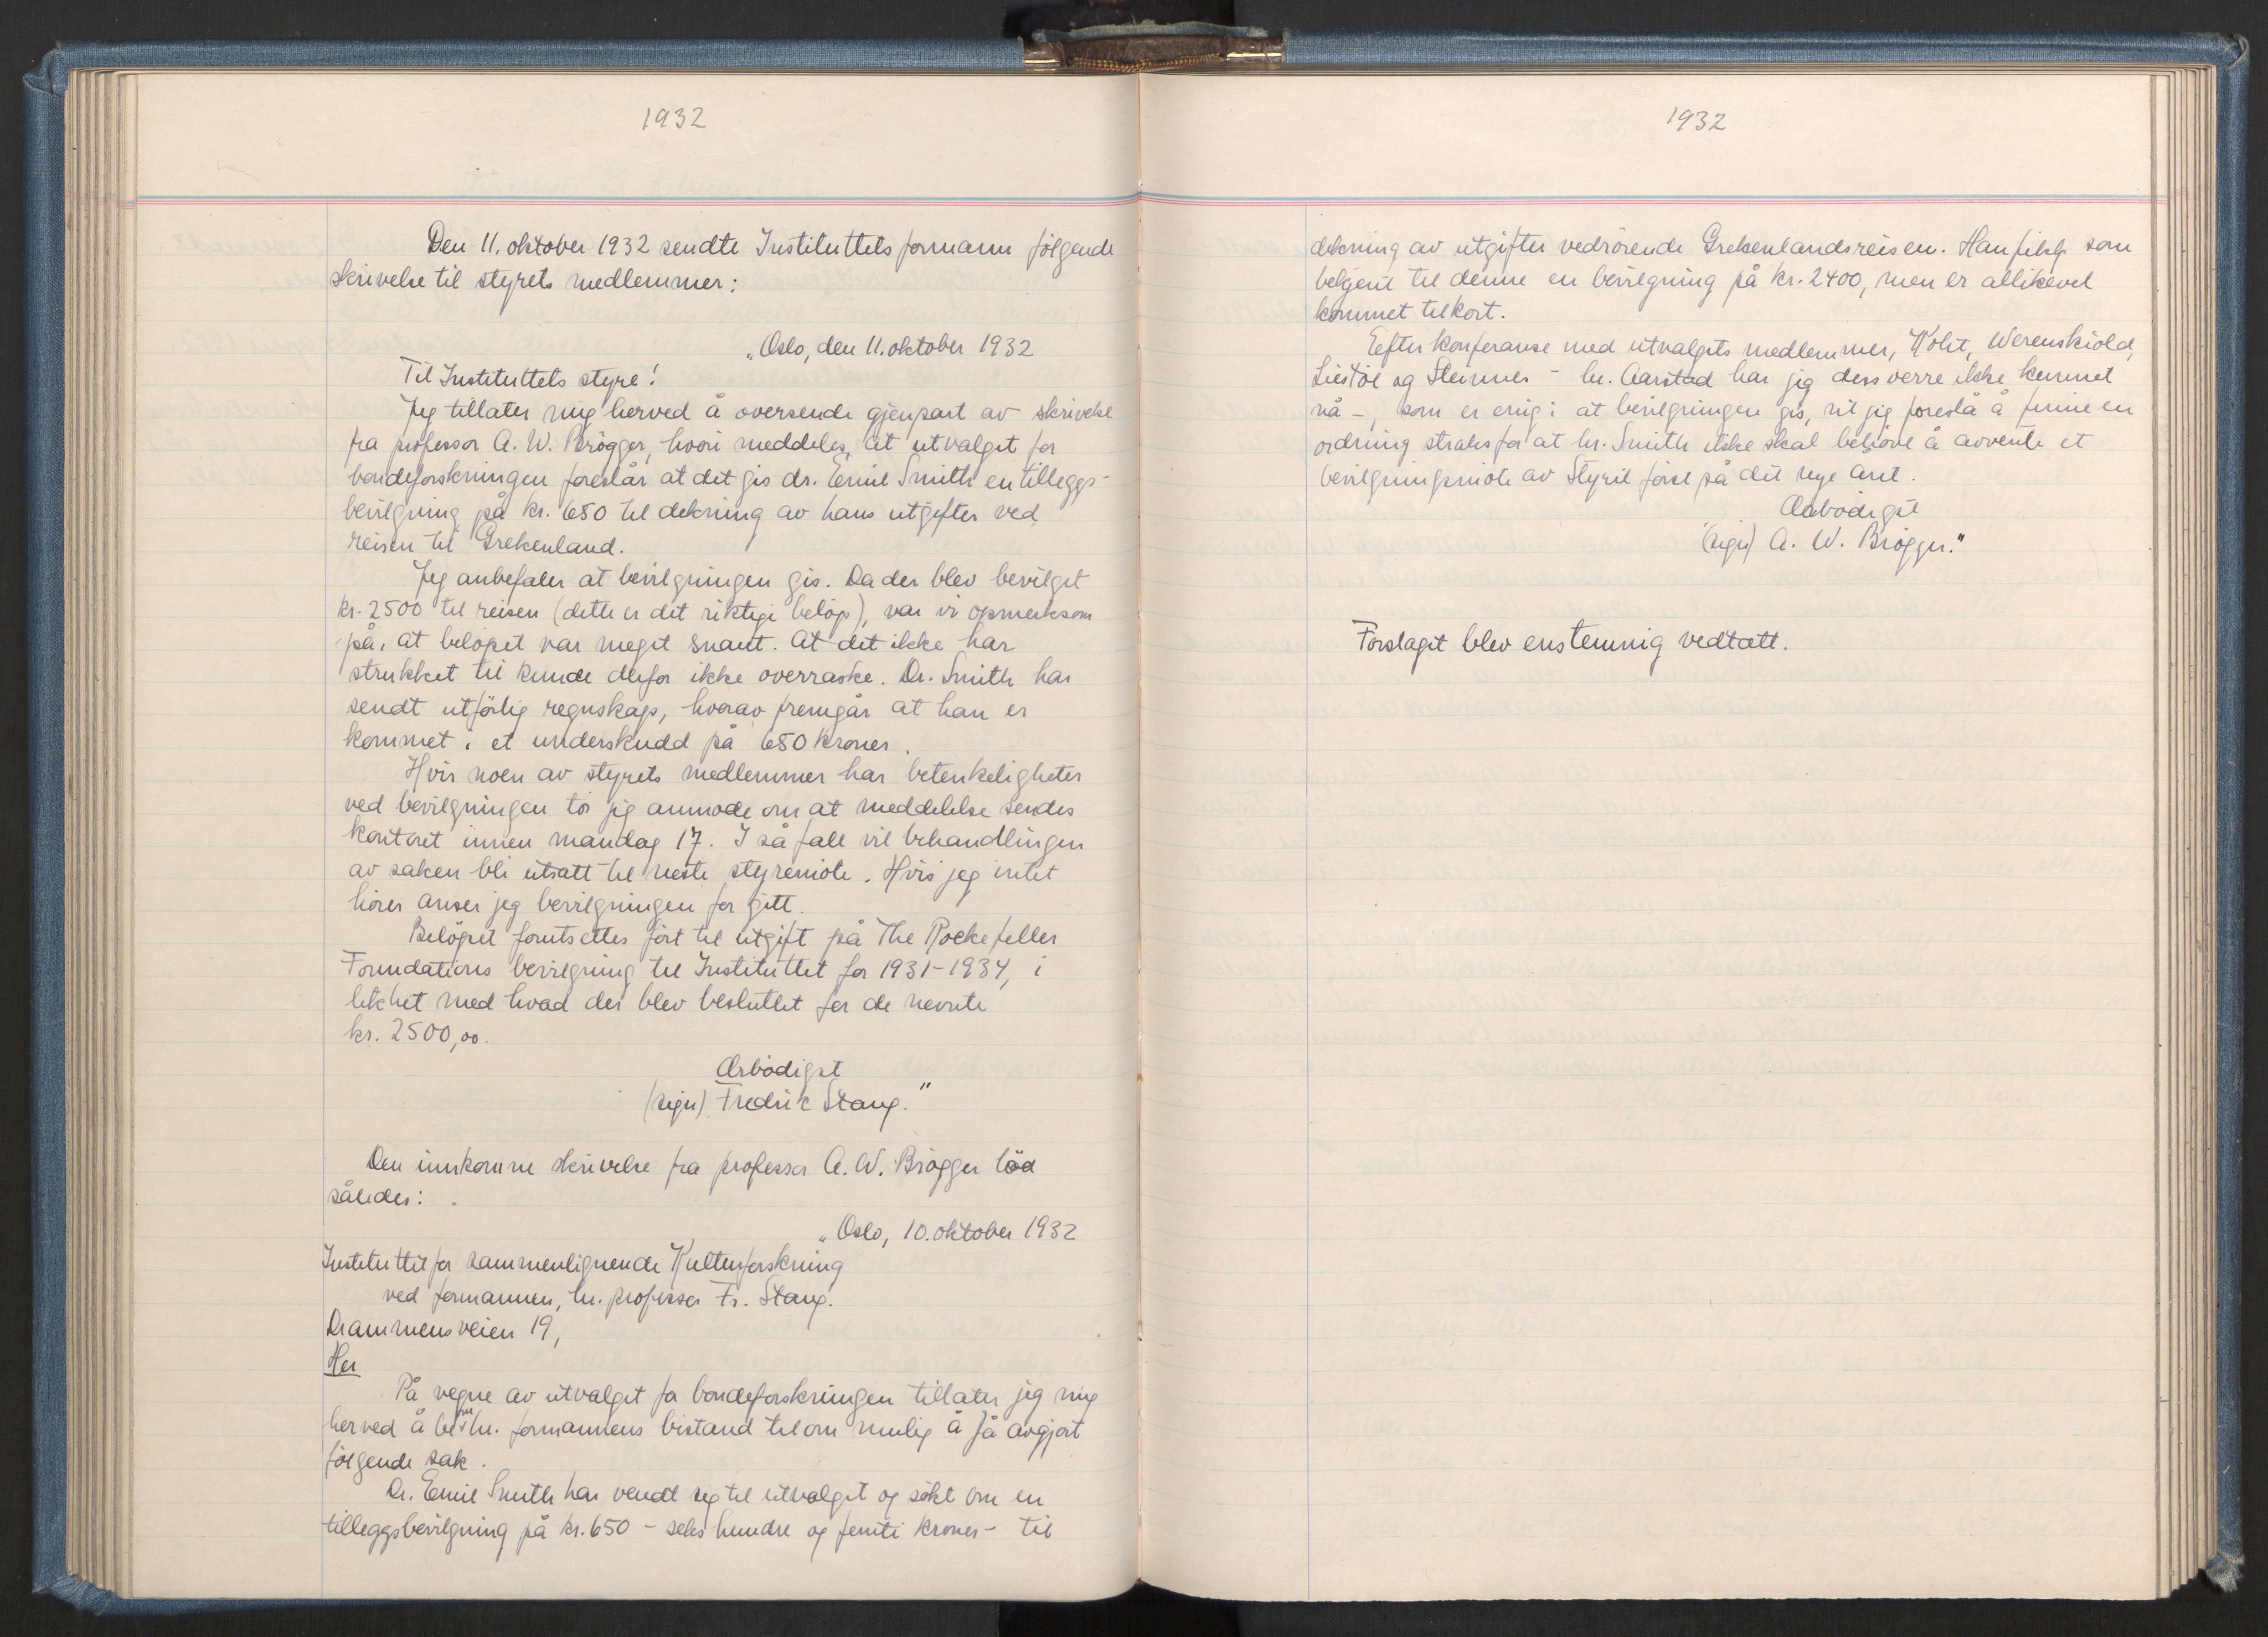 1932
Den 11. oktober 1932 sendte Instituttets formann følgende
skrivelse til styrets medlemmer:
„Oslo, den 11. oktober 1932
Til Instituttets styre!
Jeg tillater mig herved å oversende gjenpart av skrivelse
fra professor A. W. Brøgger, hvori meddeles, at utvalget for
bondeforskningen foreslår at det gis dr. Emil Smith en tilleggs-
bevilgning på kr. 650 til dekning av hans utgifter ved
reisen til Grekenland.
Jeg anbefaler at bevilgningen gis. Da der blev bevilget
kr. 2500 til reisen (dette er det riktige beløp), var vi opmerksom
på, at beløpet var meget snaut. At det ikke har
strukket til kunde derfor ikke overraske. Dr. Smith har
sendt utførlig regnskap, hvorav fremgår at han er
kommet i et underskudd på 650 kroner.
Hvis noen av styrets medlemmer har betenkeligheter
ved bevilgningen tør jeg anmode om at meddelelse sendes
kontoret innen mandag 17. I så fall vil behandlingen
av saken bli utsatt til neste styremøte. Hvis jeg intet
hører anser jeg bevilgningen for gitt.
Beløpet forutsettes ført til utgift på The Rockefeller
Foundations bevilgning til Instituttet for 1931-1934, i
likhet med hvad der blev besluttet for de nevnte
kr. 2500,00.
Ærbødigst
(sign) Fredrik Stang."
Den innkomne skrivelse fra professor A. W. Brøgger lød
således:
„Oslo, 10. oktober 1932
Instituttet for sammenlignende Kulturforskning
ved formannen, hr. professor Fr. Stang.
Drammensveien 19,
Her
På vegne av utvalget for bondeforskningen tillater jeg mig
herved å be om hr. formannens bistand til om mulig å få avgjort
følgende sak.
Dr. Emil Smith har vendt sig til utvalget og søkt om en
tilleggsbevilgning på kr. 650 - seks hundre og femti kroner - til
1932
dekning av utgifter vedrørende Grekenlandsreisen. Han fikk som
bekjent til denne en bevilgning på kr. 2400, men er allikevel
kommet tilkort.
Eefter konferanse med utvalgets medlemmer, Koht, Werenskiold,
Liestøl og Steinnes - hr. Aarstad har jeg dessverre ikke kunnet
nå -, som er enig i at bevilgningen gis, vil jeg foreslå å finne en
ordning straks for at hr. Smith ikke skal behøve å avvente et
bevilgningsmøte av Styret først på det nye året.
Ærbødigst
(sign) A. W. Brøgger."
Forslaget blev enstemmig vedtatt.